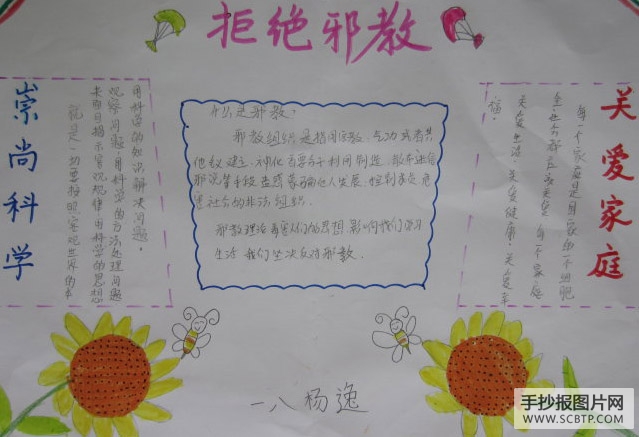 拒绝邪教
崇尚科学
用科学的知识解决问题,
观察问题,用科学的方法处理问题
来面目揭示客观规律。用科学的思想
就是一切要按照客观世界的本
什么是邪教:
邪教组织是指冒用宗教、气功或者其
他名义建立、神化首要分子利用制造、散布迷信
邪说等手段蛊惑蒙骗他人发展、控制成员危
害社会的非法组织.
邪教理论毒害人们的思想,影响我们学习
生活我们坚决反对邪教.
关爱家庭
每一个家庭是国家的一个细胞
全社会都应该关爱每一个家庭
关爱生活、关爱健康、关爱幸
福。
一八 杨逸
手抄报图片网
WWW.SCBTP.COM